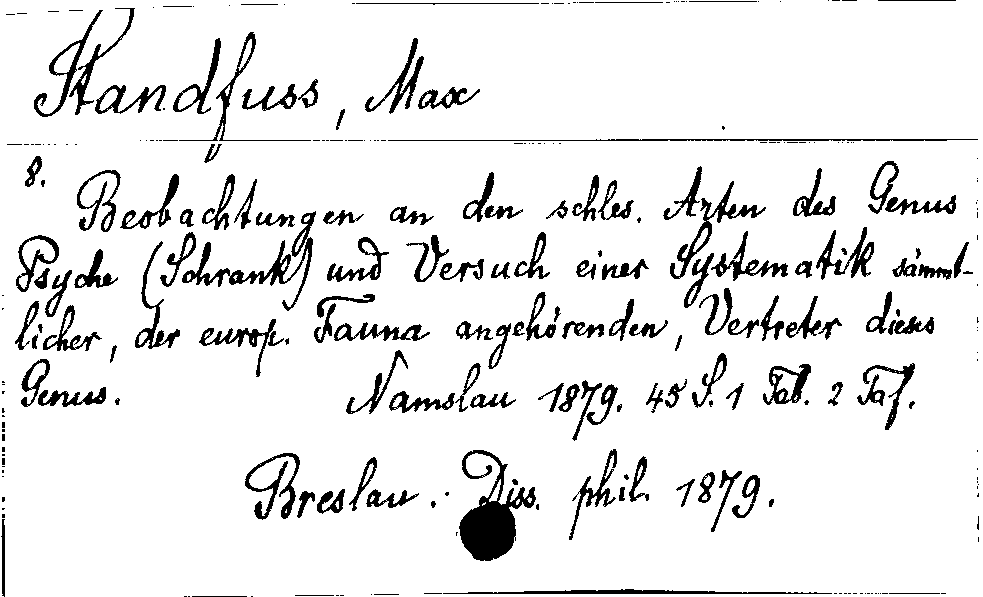 Standfuss, Max
8.
Beobachtungen an den schles. Arten des Genus
Psyche (Schrank) und Versuch einer Systematik sämmt-
licher, der europ. Fauna angehörenden, Vertreter dieses
Genus. Namslau 1879. 45 S. 1 Tab. 2 Taf.
Breslau. Diss. phil. 1879.